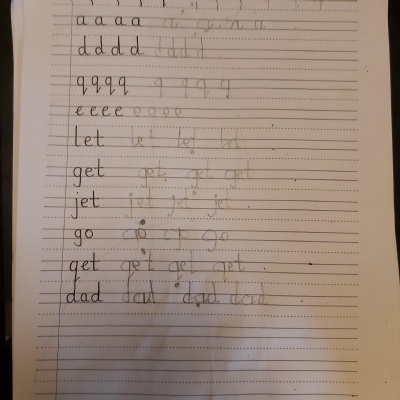 a a a a a a a a
d d d d d d d d
q q q q q q q q
e e e e e e e e
let let let let
get get get get
jet jet jet jet
go go go go
get get get get
dad dad dad dad